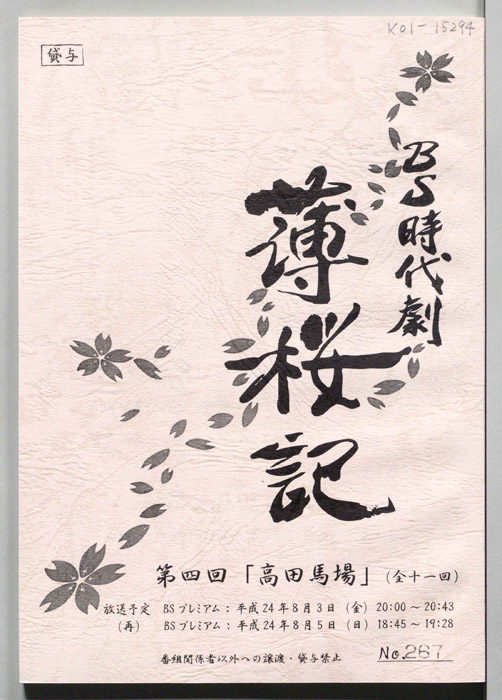 K01-15294
貸与
BS時代劇
薄桜記
第四回「高田馬場」(全十一回)
放送予定 BSプレミアム：平成24年8月3日（金）20:00～20:43
（再） BSプレミアム：平成24年8月5日（日）18:45～19:28
番組関係者以外への譲渡・貸与禁止
No.267